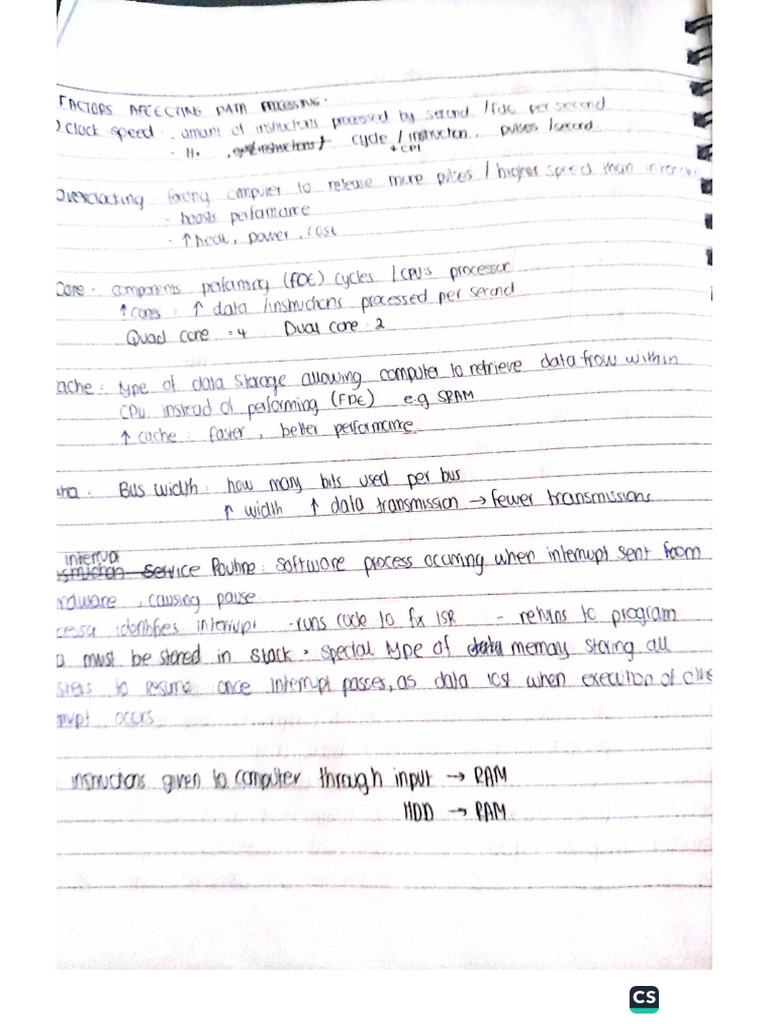 FACTORS AFFECTING DATA PROCESSING:
) Clock speed . amount of instructions processed by second / FDE per second
· Hz , cycle / instruction . pulses / second
↓ CPI
Overclocking forcing computer to release more pulses / higher speed than
- boosts performance
· ↑ heat, power, cost
Core . components performing (FDE) cycles / CPU's processor
↑ cores : ↑ data / instructions processed per second
Quad core = 4 Dual core : 2
ache : type of data storage allowing computer to retrieve data from within
CPU instead of performing (FDE) e.g SRAM
↑ cache : faster, better performance
Bus width : how many bits used per bus
↑ width ↑ data transmission → fewer transmissions
interrupt
Service Routine : software process occuring when interrupt sent from
rdware , causing pause
cessor identifies interrupt - runs code to fix ISR - returns to program
a must be stored in stack · special type of memory storing all
to resume once interrupt passes, as data lost when execution of
rrupt occurs
instructions given to computer through input → RAM
HDD → RAM
CS